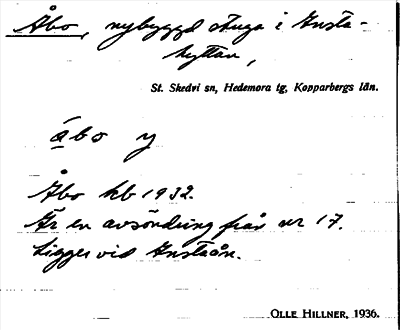 Åbo, nybyggd stuga i Insta-
hyttan,
St. Skedvi sn, Hedemora tg, Kopparbergs län.
åbo y
Åbo kb 1932.
Är en avsöndring från nr 17.
Ligger vid Instaån.
OLLE HILLNER, 1936.